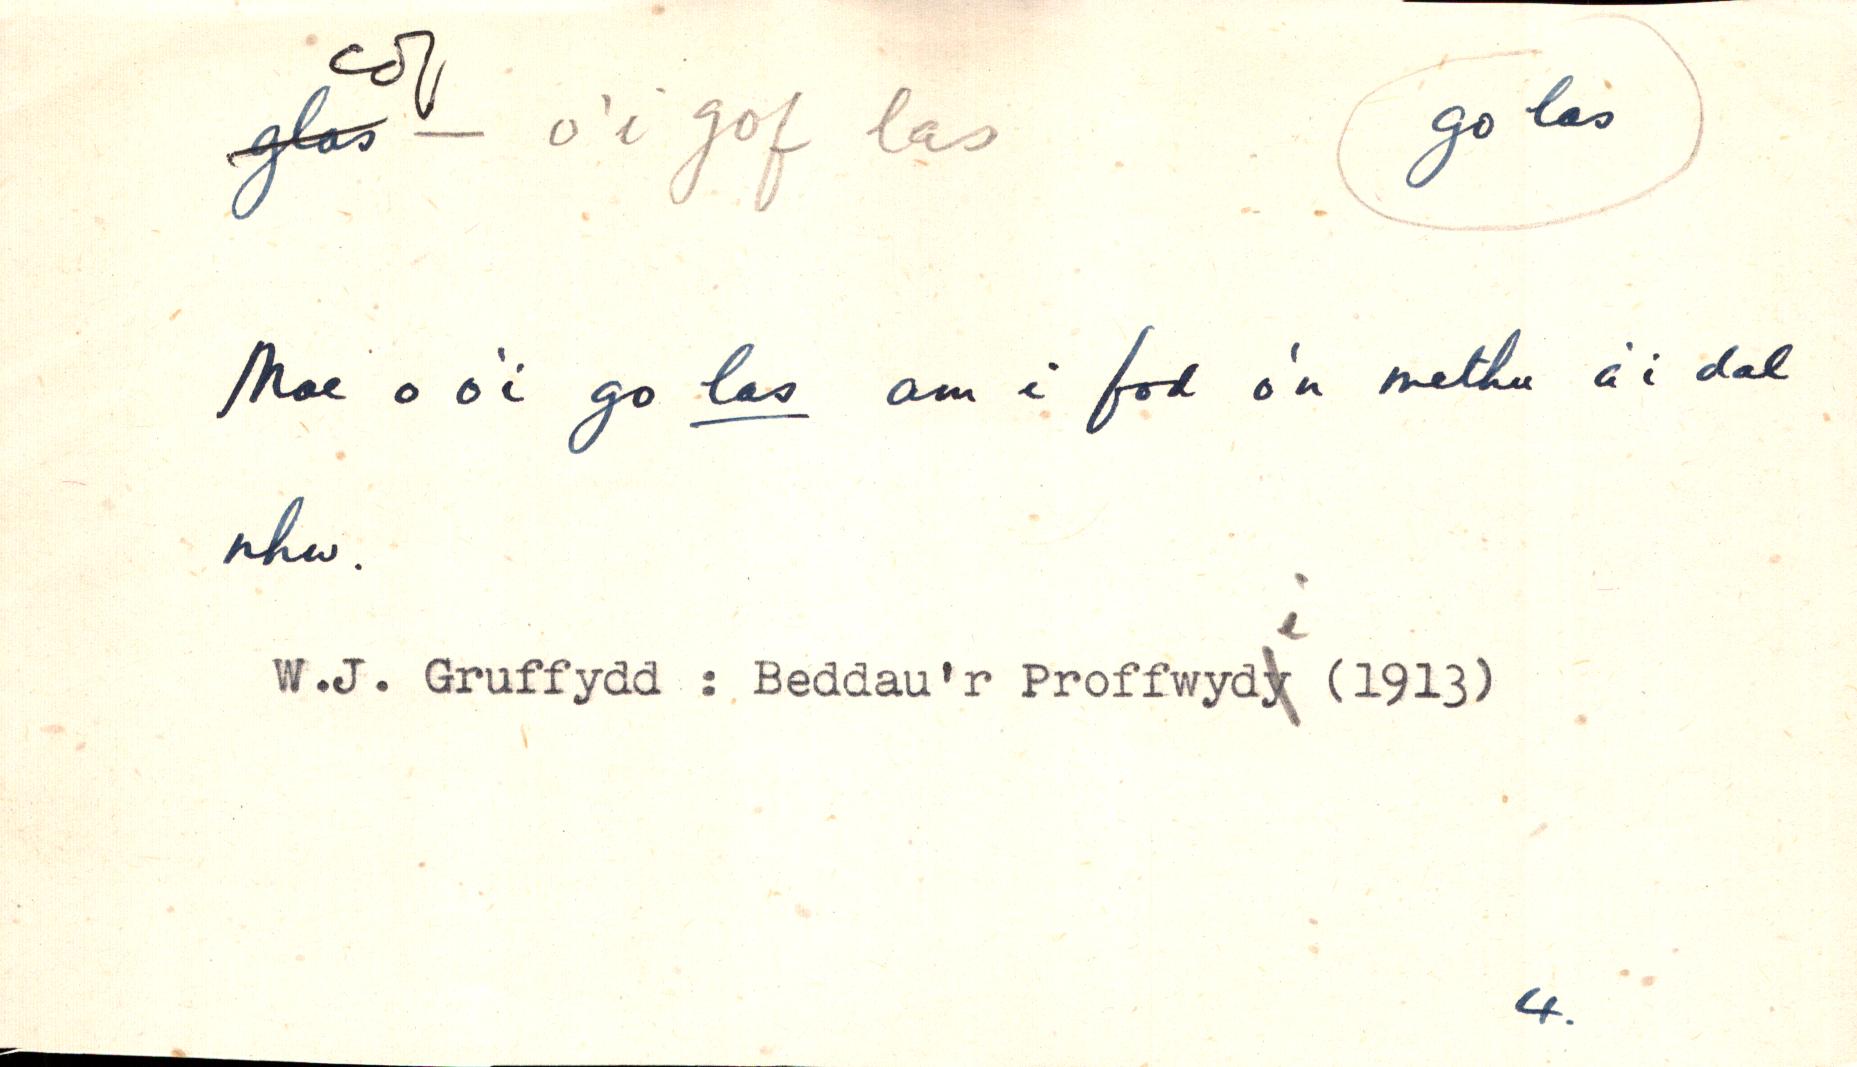 cof
glas — o'i gof las
go las
Mae o o'i go las am i fod o'n methu a'i dal
nhw.
i
W.J. Gruffydd : Beddau'r Proffwydy (1913)
4.